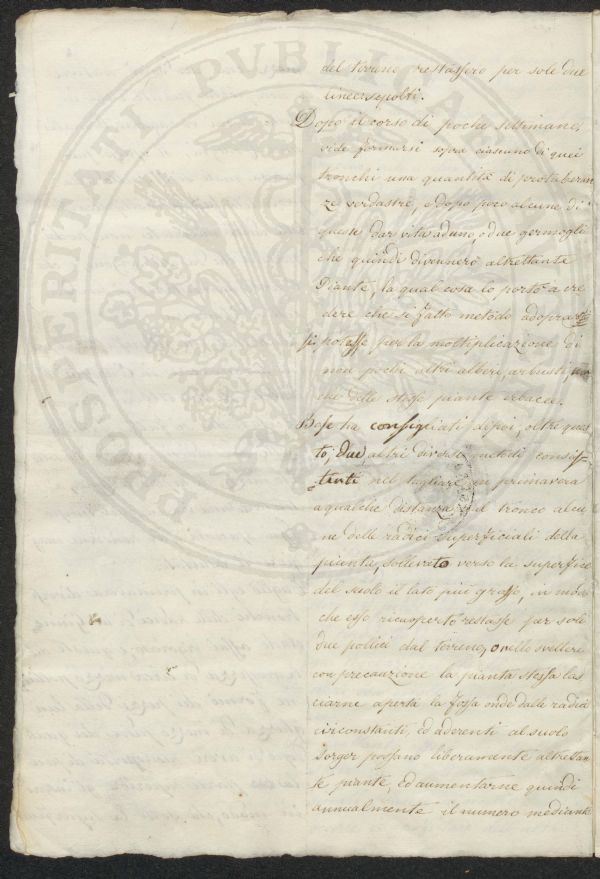 del terreno restassero per sole due
linee sepolti.
Dopo il corso di poche settimane,
vide formarsi sopra ciascuno di quei
tronchi una quantità di protuberan
ze verdastre, e dopo poco alcune di
queste dar vita ad uno, o due germogli
che quindi divennero altrettante
Piante, la qual cosa lo portò a cre
dere che sì fatto metodo adoprar
si potesse per la moltiplicazione di
non pochi altri alberi, arbusti,
che delle stesse piante erbacee.
Bosc ha consigliati dipoi, oltre ques
to, due altri diversi metodi consis
tenti nel tagliare in primavera
a qualche distanza dal tronco alcu
ne delle radici superficiali della
pianta, sollevato verso la superficie
del suolo il lato più grosso, in modo
che esso ricuoperto restasse per sole
due pollici dal terreno, o nello svellere
con precauzione la pianta stessa las
ciarne aperta la fossa onde dalle radici
circostanti, ed aderenti al suolo
sorger possano liberamente altrettan
te piante, ed aumentarne quindi
annualmente il numero mediante
PROSPERITATI PVBLICAE